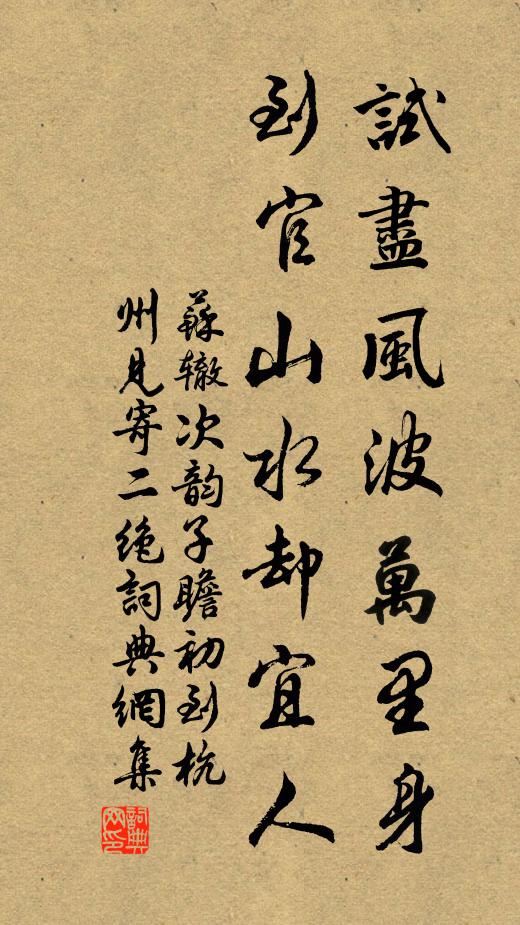 試盡風波萬里身
到官山水却宜人
蘇辙次韵子瞻初到杭
州見寄二绝詞典網集
詞典
网印